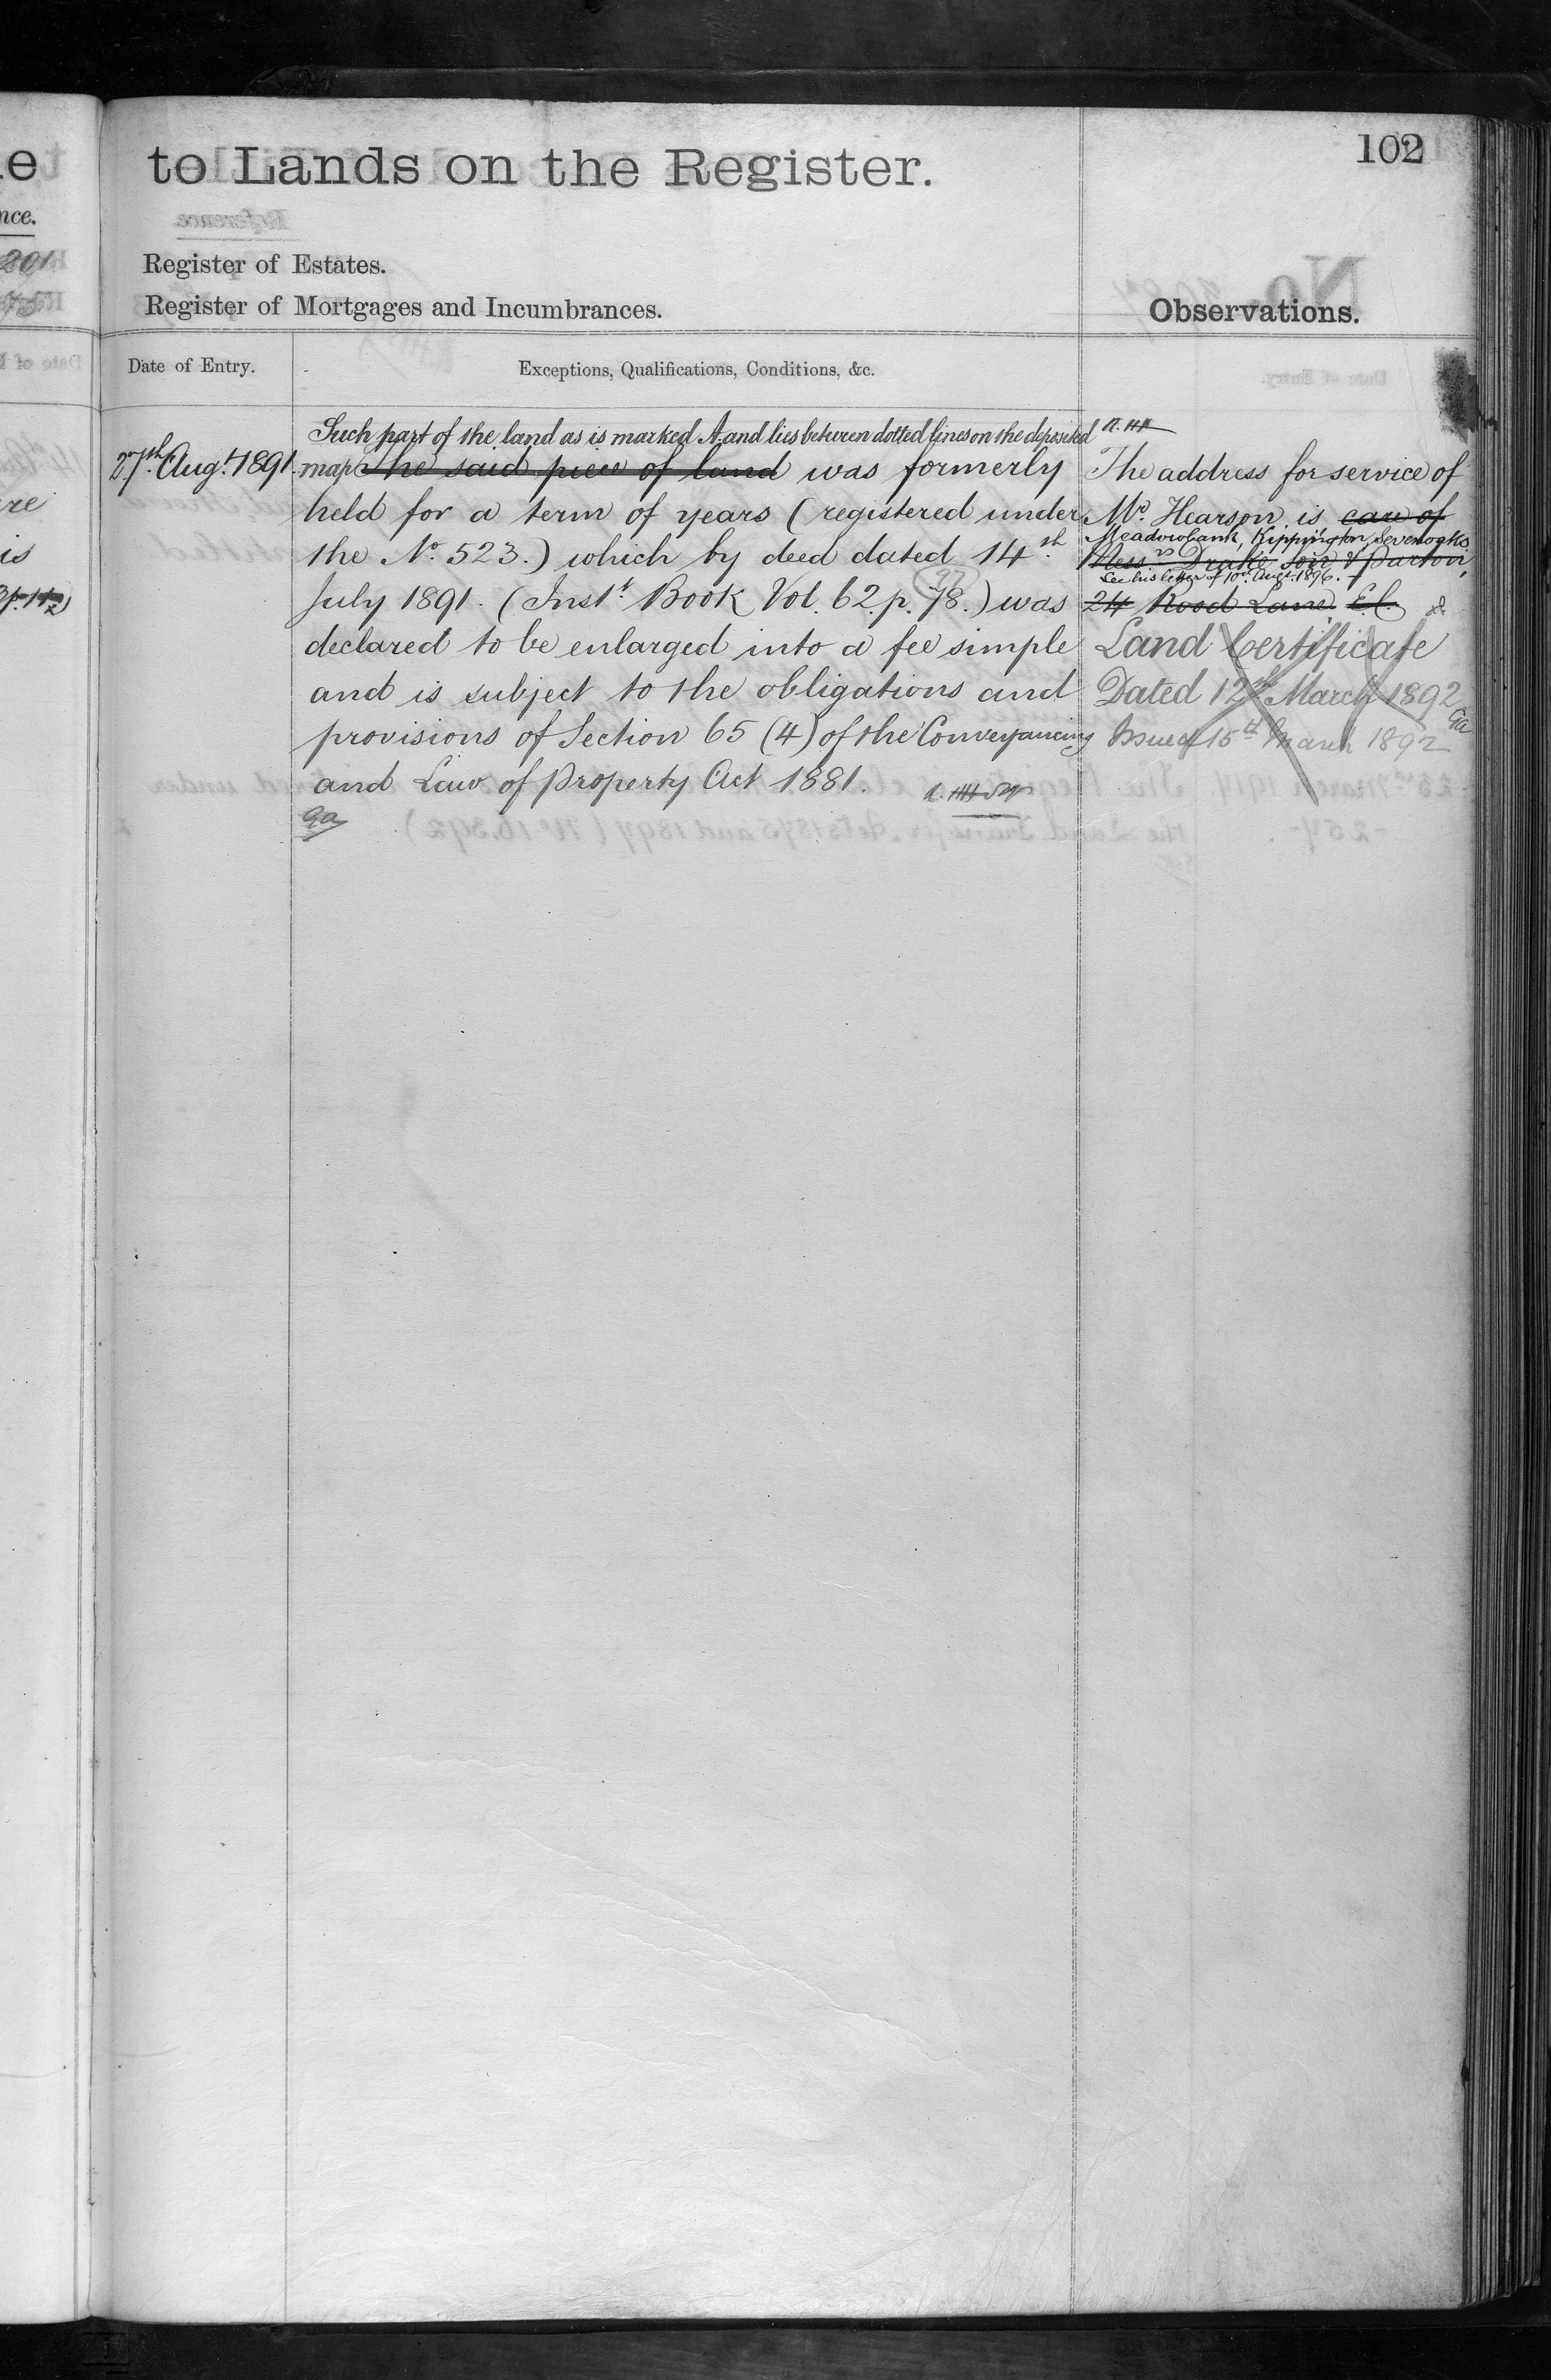 to Lands on the Register.
102
Register of Estates.
Register of Mortgages and Incumbrances.
Observations.
Date of Entry.
Exceptions, Qualifications, Conditions, &c.
27th Augt. 1891.
Such part of the land as is marked A and lies between dotted lines on the deposited
map The said piece of land was formerly
held for a term of years (registered under
the No. 523.) which by deed dated 14th
July 1891. (Instt. Book Vol. 62. p. 78.) was
77
declared to be enlarged into a fee simple
and is subject to the obligations and
provisions of Section 65 (4) of the Conveyancing
and Law of Property Act 1881.
The address for service of
Mr. Hearson is care of
Meadowbank, Kippington, Sevenoaks
Messrs Drake Son & Parton,
See his letter of 10th Augt. 1896.
24 Rood Lane. E.C.
Land Certificate
Dated 12th March 1892
Issued 15th March 1892